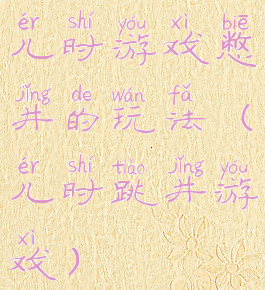 ér shí yóu xì biē
儿时游戏憋
jǐng de wán fǎ
井的玩法（
ér shí tiào jǐng yóu
儿时跳井游
xì
戏）